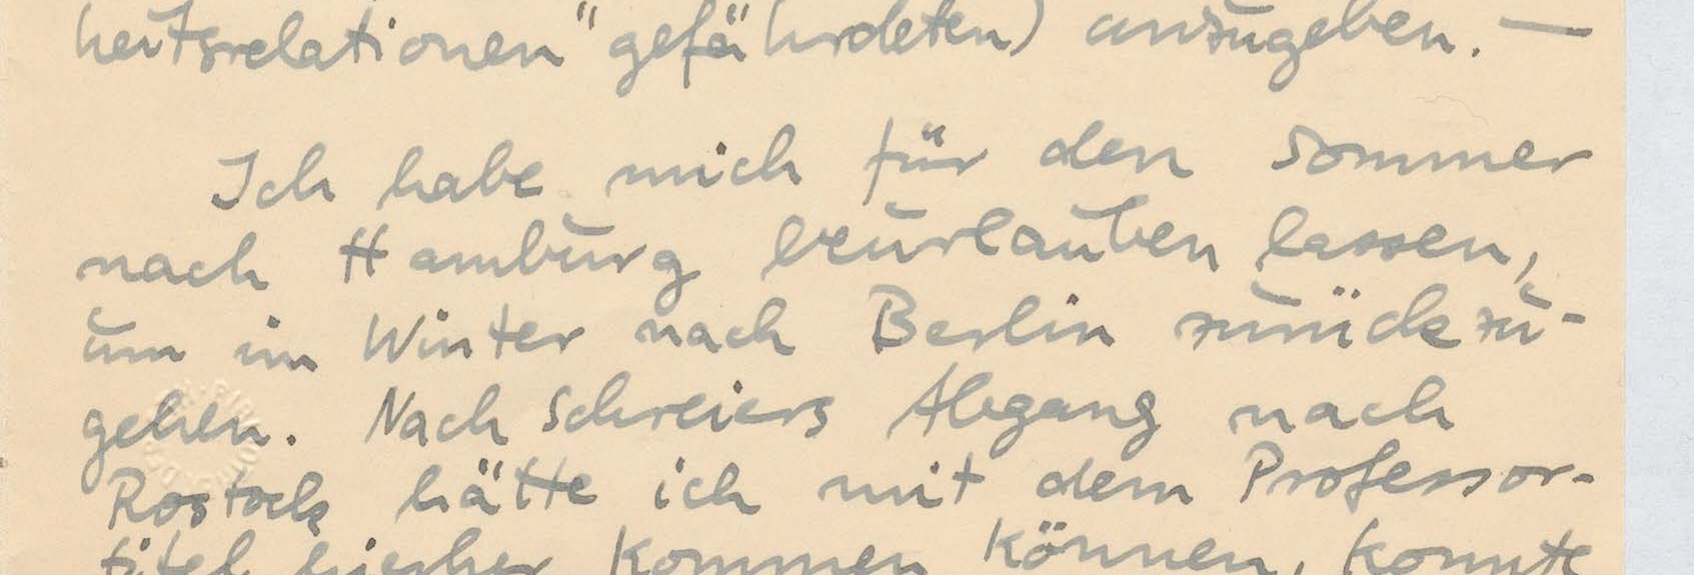 heitsrelationen" gefährdeten) anzugeben. —
Ich habe mich für den Sommer
nach Hamburg beurlauben lassen,
um im Winter nach Berlin zurückzu-
gehen. Nach Schreiers Abgang nach
Rostock hätte ich mit dem Professor-
titel hierher kommen können, konnte